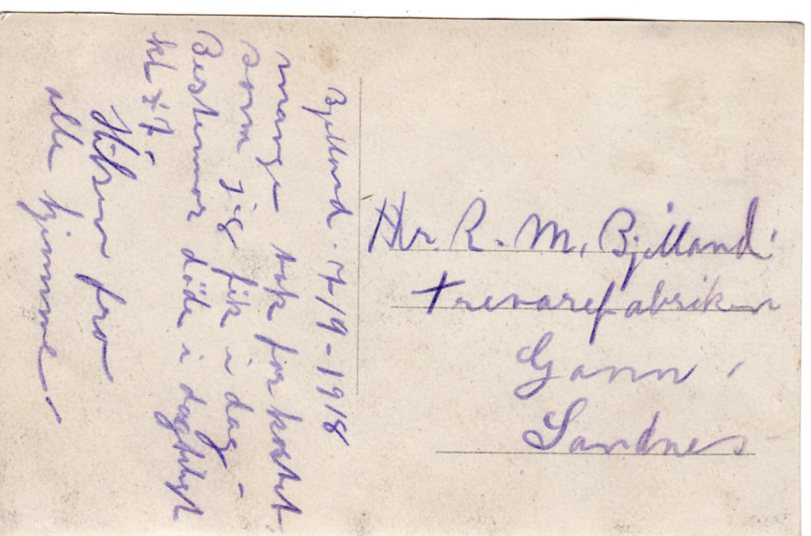 Bjelland. 7/9-1918
mange tak for kortet,
som jeg fik i dag -
Bestemor døde i dag
kl 7
Hilsen fra
alle hjemme.
Hr. R. M. Bjelland.
Trevarefabriken
Gann,
Sandnes